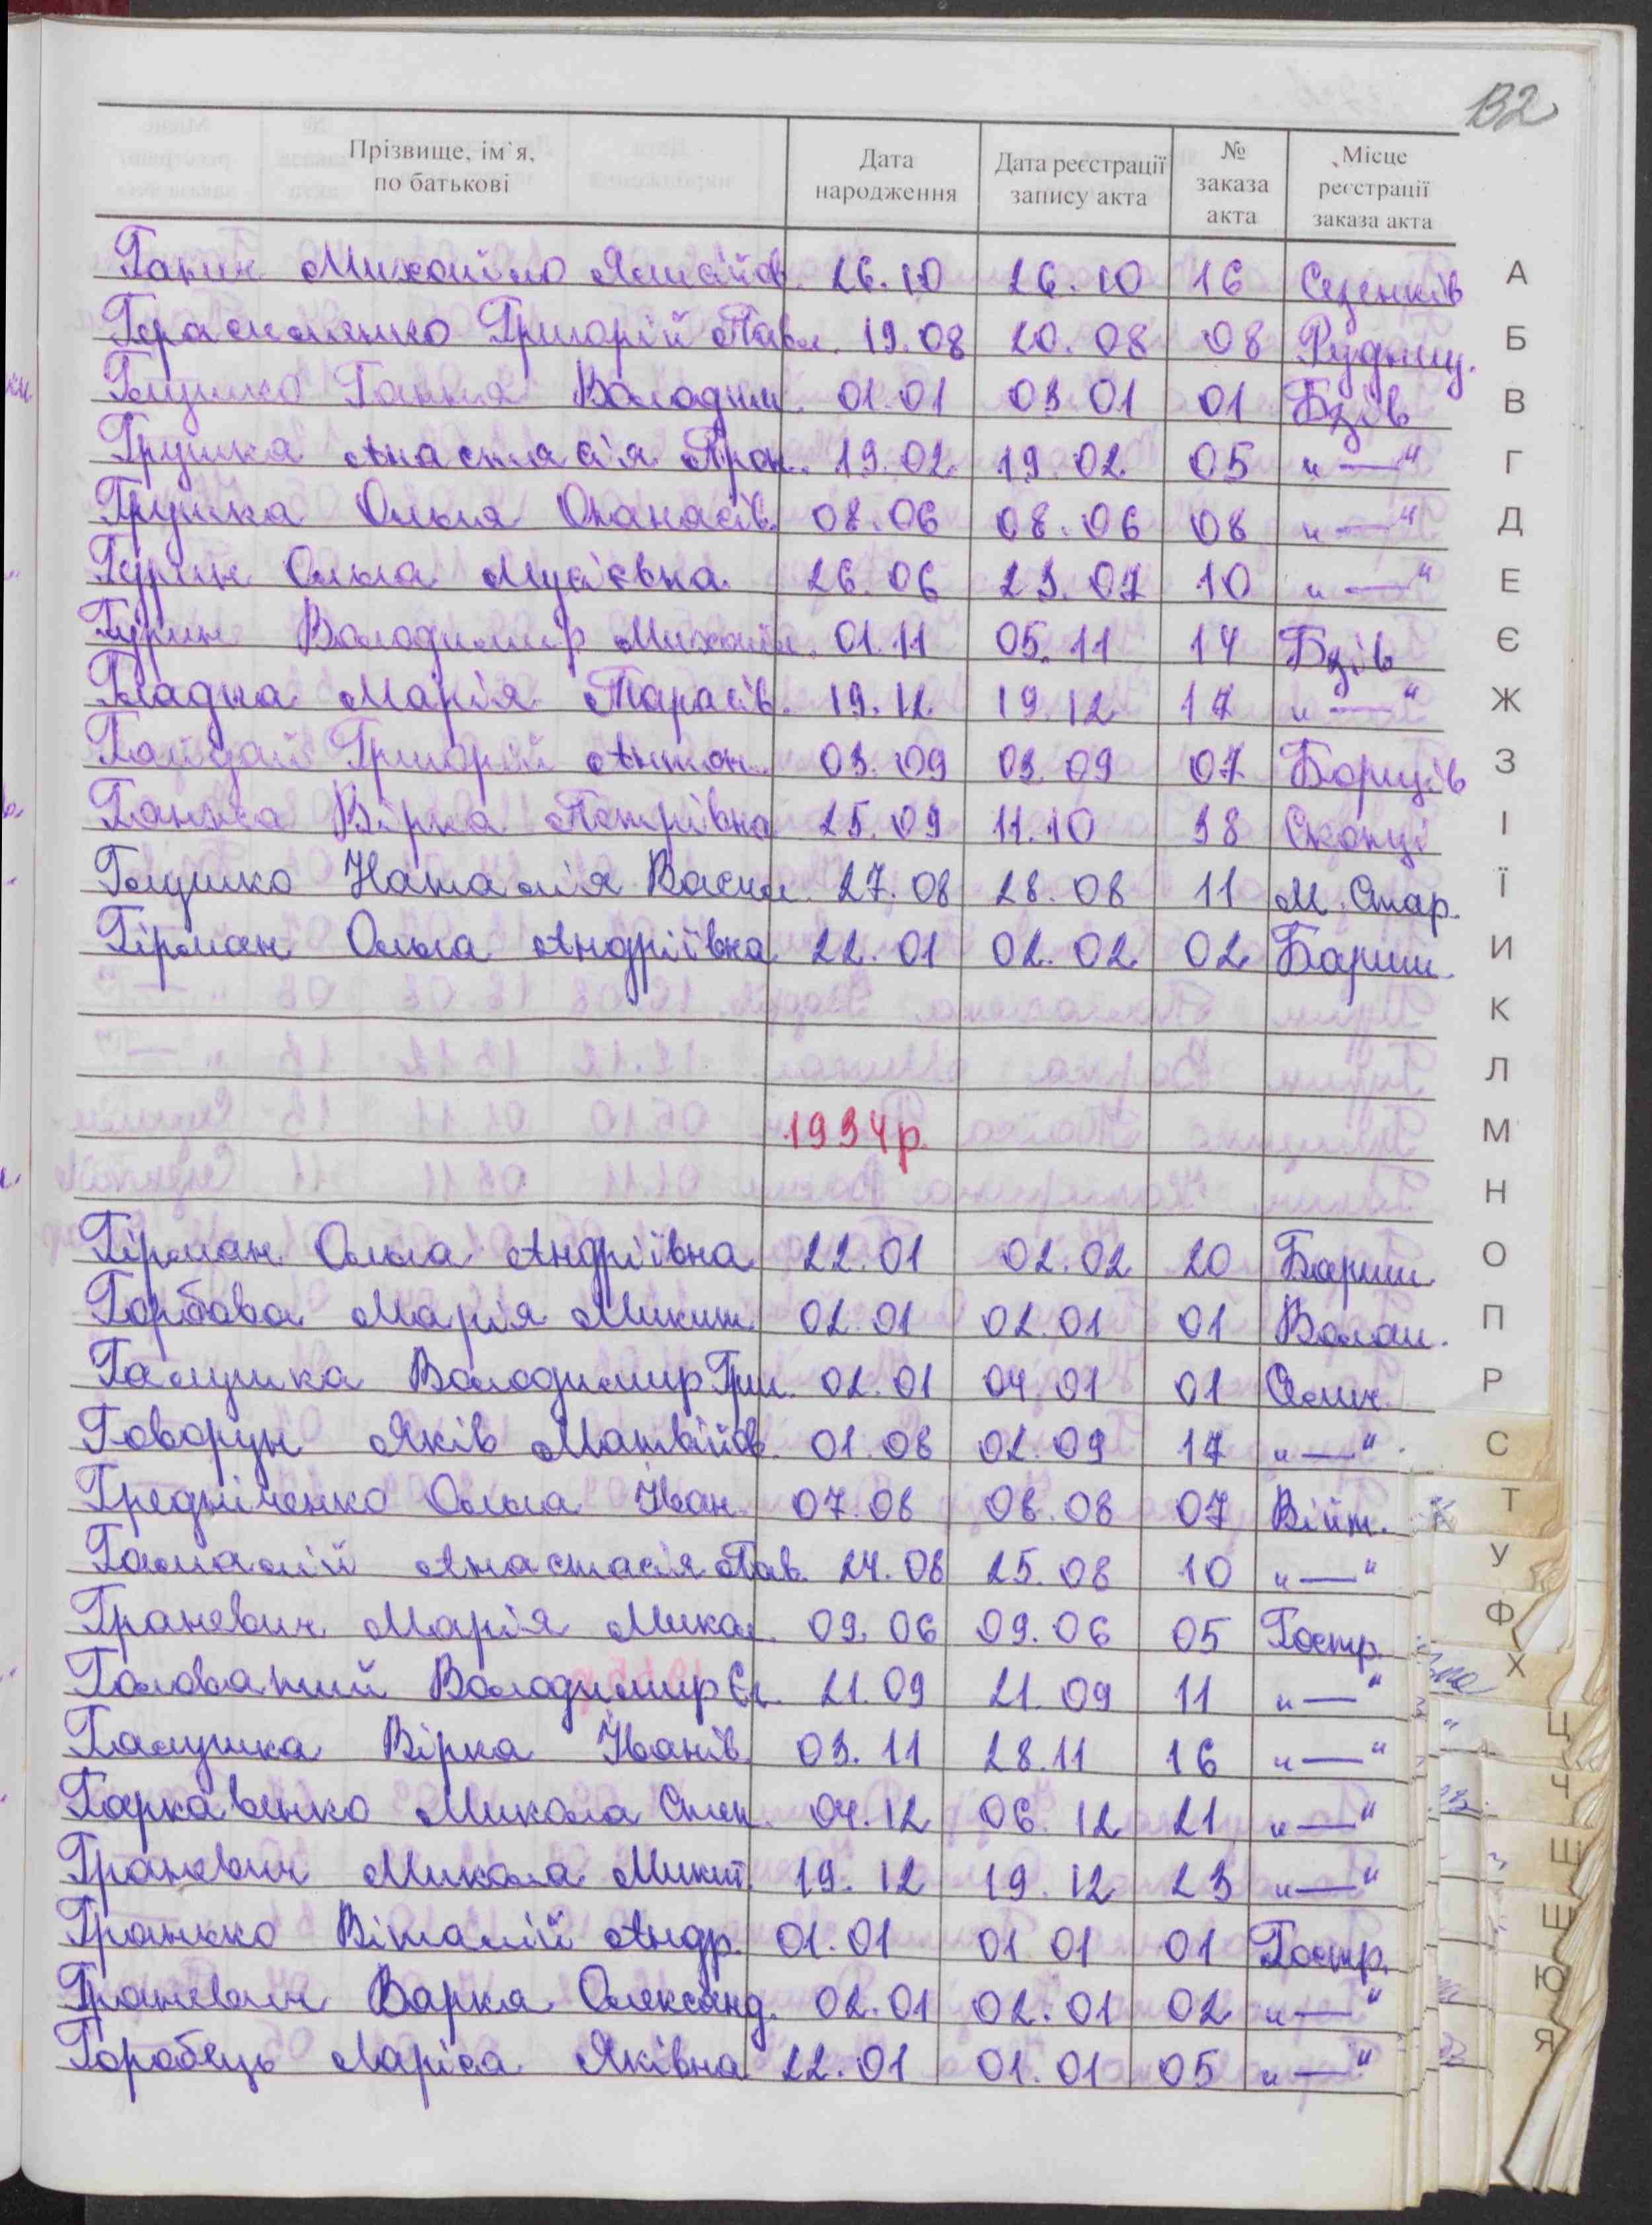 В2
Прізвище, ім`я, по батькові | Дата народження | Дата реєстрації запису акта | № заказа акта | Місце реєстрації заказа акта
Ганин Михайло 26.10 26.10 16 Сезенків
Герасименко Григорій Павл. 19.08 20.08 08 Рудниц.
Глушко Ганна Володим. 01.01 03.01 01 Бзів
Грушка Анастасія 19.02 19.02 05 „—“
Грушка Ольга Опанасів. 08.06 08.06 08 „—“
Гурин Ольга Мусієвна 26.06 23.07 10 „—“
Гурин Володимир Михайл. 01.11 05.11 14 Бзів
Гладка Марія Тарасів. 19.12 19.12 17 „—“
Гайдай Григорій Антон. 03.09 03.09 07 Борщів
Ганжа Вірка Петрівна 25.09 11.10 38 Скопці
Глушко Наталія Васил. 27.08 28.08 11 М. Стар.
Гірман Ольга Андріївна 22.01 02.02 02 Бариш.
1934 р.
Гірман Ольга Андріївна 22.01 02.02 20 Бариш.
Горбова Марія Микит. 02.01 02.01 01 Волош.
Галушка Володимир Григ. 02.01 04.01 01
Говорун Яків Матвійов. 01.08 02.09 17 „—“
Гредніченко Ольга Іван. 07.08 08.08 07 Війт.
Гамалій Анастасія Пав. 24.08 25.08 10 „—“
Граневич Марія Микол. 09.06 09.06 05 Гостр.
Головатий Володимир 21.09 21.09 11 „—“
Галушка Вірка Іванів. 03.11 28.11 16 „—“
Гаркавенко Микола Степ. 04.12 06.12 21 „—“
Граневич Микола Микит. 19.12 19.12 23 „—“
Гранько Віталій Андр. 01.01 01.01 01 Гостр.
Граневич Варка Олександ. 02.01 02.01 02 „—“
Горобець Лариса Яківна 22.01 01.01 05 „—“
А
Б
В
Г
Д
Е
Є
Ж
З
І
Ї
И
К
Л
М
Н
О
П
Р
С
Т
У
Ф
Х
Ц
Ч
Ш
Щ
Ю
Я